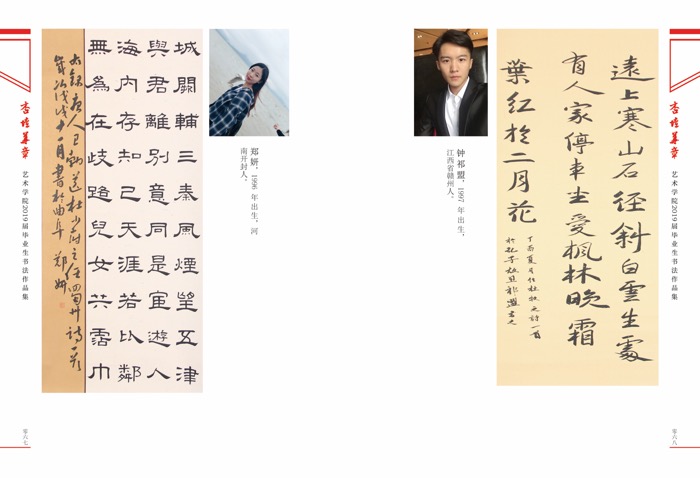 杏坛華章
艺术学院2019届毕业生书法作品集
零六七
城闕輔三秦風煙望五津
與君離別意同是宦遊人
海内存知己天涯若比鄰
無為在歧路兒女共霑巾
唐人王勃送杜少府之任蜀州詩一首
歲次戊戌十一月書於曲阜 郑妍
郑妍,1996年出生,河
南开封人。
钟祁盟,1997年出生,
江西省赣州人。
遠上寒山石徑斜白雲生處
有人家停車坐愛楓林晚霜
葉紅於二月花
丁酉夏月 杜牧之詩一首
於孔子故里祁盟書之
杏坛華章
艺术学院2019届毕业生书法作品集
零六八